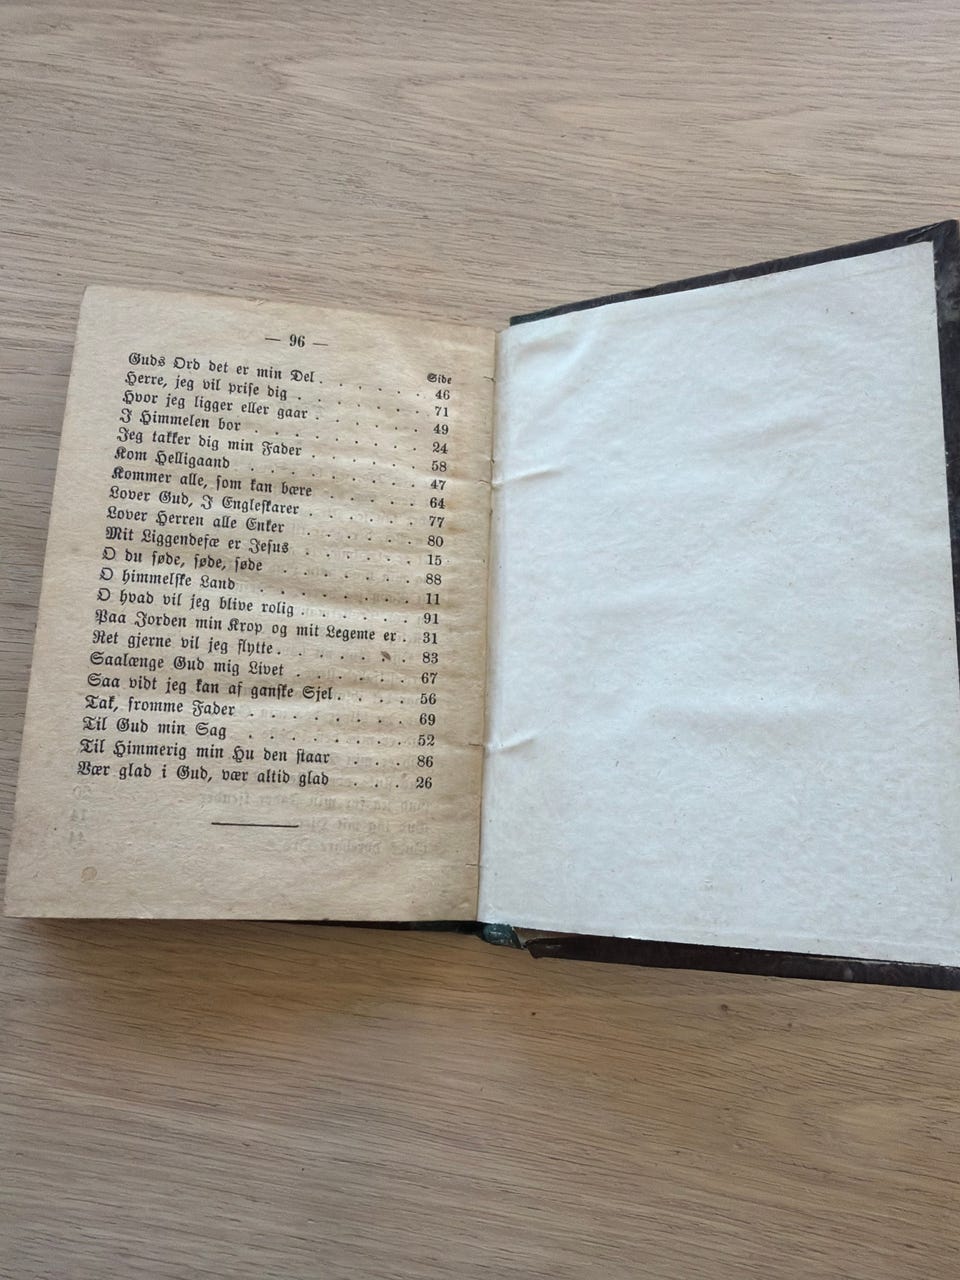 — 96 —
Side
Guds Ord det er min Del . . . . . . 46
Herre, jeg vil prise dig . . . . . . . 71
Hvor jeg ligger eller gaar . . . . . . 49
I Himmelen bor . . . . . . . . 24
Jeg takker dig min Fader . . . . . . 58
Kom Helligaand . . . . . . . . 47
Kommer alle, som kan bære . . . . . 64
Lover Gud, I Engleskarer . . . . . . 77
Lover Herren alle Enker . . . . . . 80
Mit Liggendefæ er Jesus . . . . . . 15
O du søde, søde, søde . . . . . . . 88
O himmelske Land . . . . . . . . 11
O hvad vil jeg blive rolig . . . . . . 91
Paa Jorden min Krop og mit Legeme er . . 31
Ret gjerne vil jeg flytte . . . . . . . 83
Saalænge Gud mig Livet . . . . . . 67
Saa vidt jeg kan af ganske Sjel . . . . . 56
Tak, fromme Fader . . . . . . . . 69
Til Gud min Sag . . . . . . . . 52
Til Himmerig min Hu den staar . . . . 86
Vær glad i Gud, vær altid glad . . . . 26